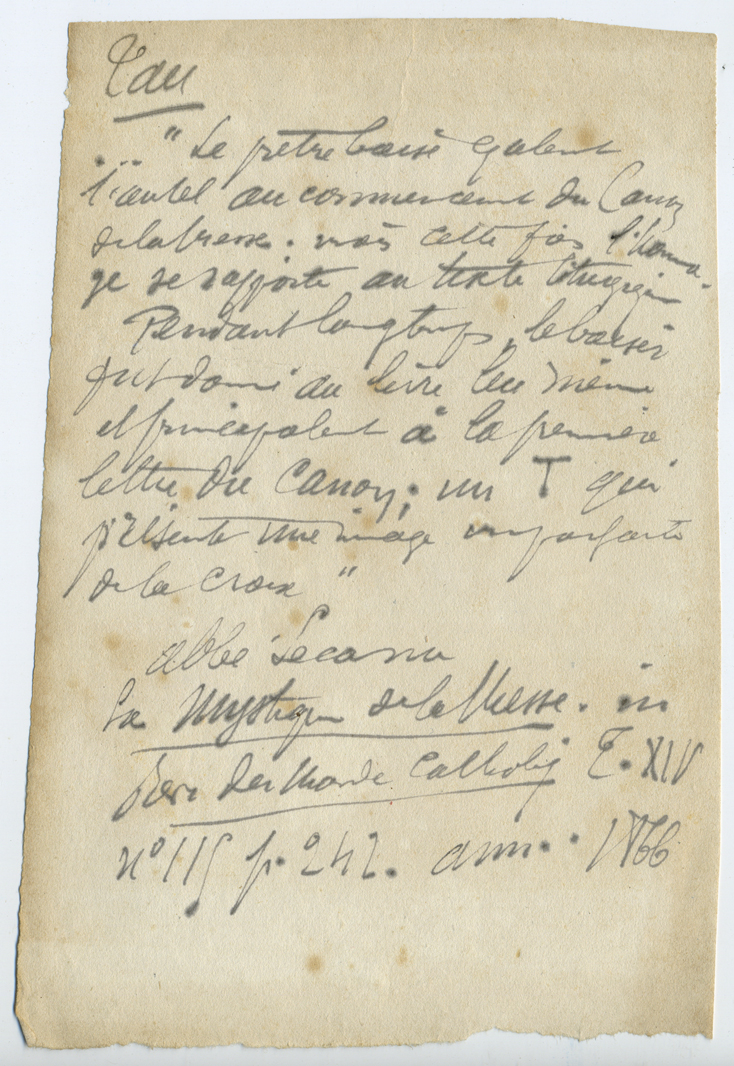 Tau
... " Le prêtre baise egalemt
l'autel au commencemt du Canon
de la messe. mais cette fois l'homma-
ge se rapporte au texte liturgique
Pendant longtemps, le baiser
fut donné au livre lui même
et principalemt à la première
lettre du Canon; un T qui
présente une image imparfaite
de la croix "
abbé
La Mystique de la Messe. in
Rev. du Monde Catholiq T. XIV
n° 115 p. 242. ann.. 1866